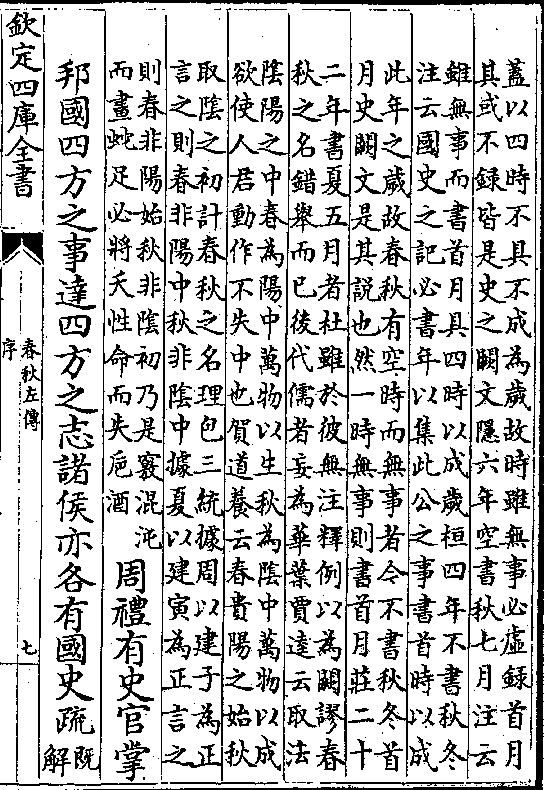 蓋以四時不具不成為歲故時雖無事必虚録首月
其或不録皆是史之闕文隱六年空書秋七月注云
雖無事而書首月具四時以成歲桓四年不書秋冬
注云國史之記必書年以集此公之事書首時以成
此年之歲故春秋有空時而無事者今不書秋冬首
月史闕文是其說也然一時無事則書首月莊二十
二年書夏五月者杜雖於彼無注釋例以為闕謬春
秋之名錯舉而已後代儒者妄為華葉賈逵云取法
陰陽之中春為陽中萬物以生秋為陰中萬物以成
欲使人君動作不失中也賀道養云春貴陽之始秋
取陰之初計春秋之名理包三統據周以建子為正
言之則春非陽中秋非陰中據夏以建寅為正言之
則春非陽始秋非陰初乃是竅混沌
而畫蛇足必將夭性命而失巵酒
周禮有史官掌
邦國四方之事達四方之志諸侯亦各有國史
疏既
解
欽定四庫全書
春秋左傳
序
七